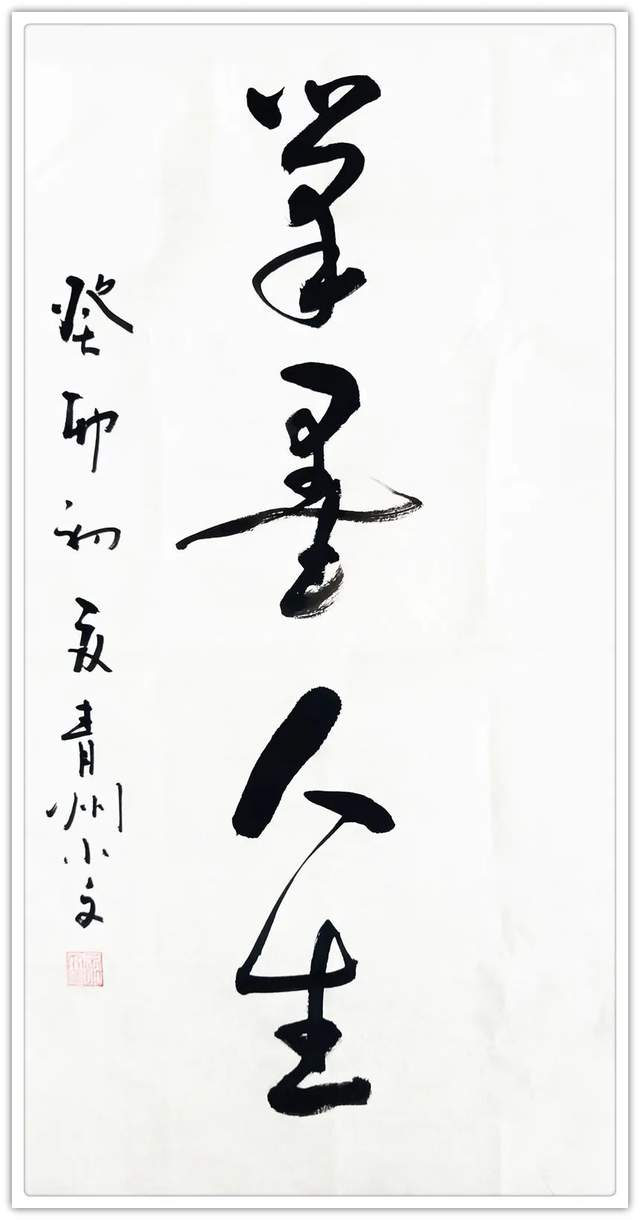 笔墨人生
癸卯初夏青州小文